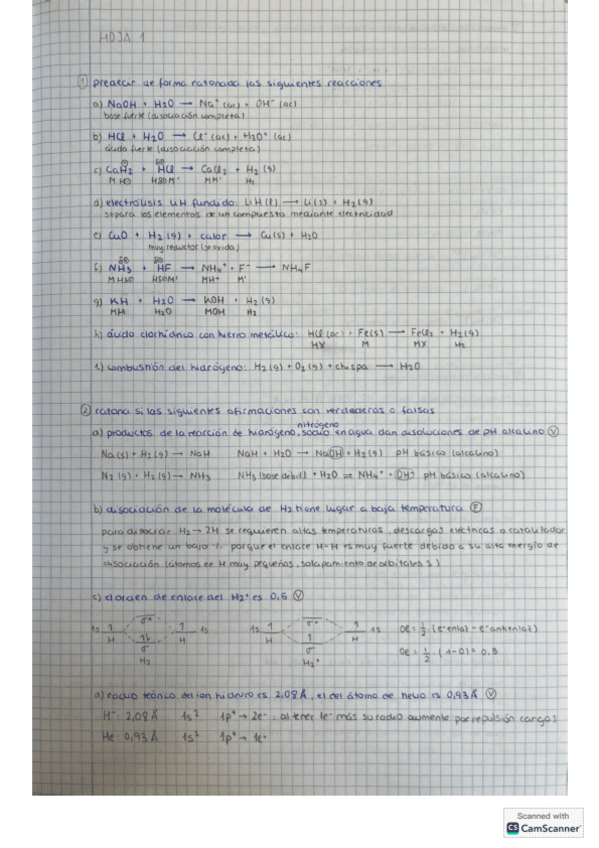 HOJA 1
① predecir de forma razonada las siguientes reacciones
a) NaOH + H2O → Na⁺ (ac) + OH⁻ (ac)
base fuerte (disociación completa)
b) HCl + H2O → Cl⁻ (ac) + H3O⁺ (ac)
ácido fuerte (disociación completa)
c) CaH2 + HCl → CaCl2 + H2 (g)
MM' H2
d) electrólisis LiH fundido: LiH (l) → Li(s) + H2(g)
separa los elementos de un compuesto mediante electricidad
e) CuO + H2(g) + calor → Cu(s) + H2O
muy reductor (se oxida)
f) NH3 + HF → NH4⁺ + F⁻ → NH4F
MH+ M'
g) KH + H2O → KOH + H2(g)
MH H2O MOH H2
h) ácido clorhídrico con hierro metálico: HCl (ac) + Fe(s) → FeCl2 + H2(g)
HX M MX H2
i) combustión del hidrógeno: H2(g) + O2(g) + chispa → H2O
② razona si las siguientes afirmaciones son verdaderas o falsas
nitrógeno
a) productos de la reacción de hidrógeno, sodio en agua dan disoluciones de pH alcalino Ⓥ
Na(s) + H2(g) → NaH NaH + H2O → NaOH + H2(g) pH básico (alcalino)
N2(g) + H2(g) → NH3 NH3 (base débil) + H2O ⇌ NH4⁺ + OH⁻ pH básico (alcalino)
b) disociación de la molécula de H2 tiene lugar a baja temperatura Ⓕ
para disociar H2 → 2H se requieren altas temperaturas, descargas eléctricas o catalizador
y se obtiene un bajo % porque el enlace H-H es muy fuerte debido a su alta energía de
disociación (átomos de H muy pequeños, solapamiento de orbitales s)
c) el orden de enlace del H2⁺ es 0,5 Ⓥ
σ* σ*
1s 1 1 1s 1s 1 1 1s OE = 1/2 · (e⁻enlaz - e⁻antienlaz)
H 1↓ H H 1 H
σ σ OE = 1/2 · (1-0) = 0,5
H2 H2⁺
d) radio teórico del ion hidruro es 2,08 Å, el del átomo de helio es 0,93 Å Ⓥ
H⁻: 2,08 Å 1s² 1p⁺ → 2e⁻: al tener 1e⁻ más su radio aumente por repulsión cargas
He: 0,93 Å 1s² 1p⁺ → 1e⁻
Scanned with
CS CamScanner